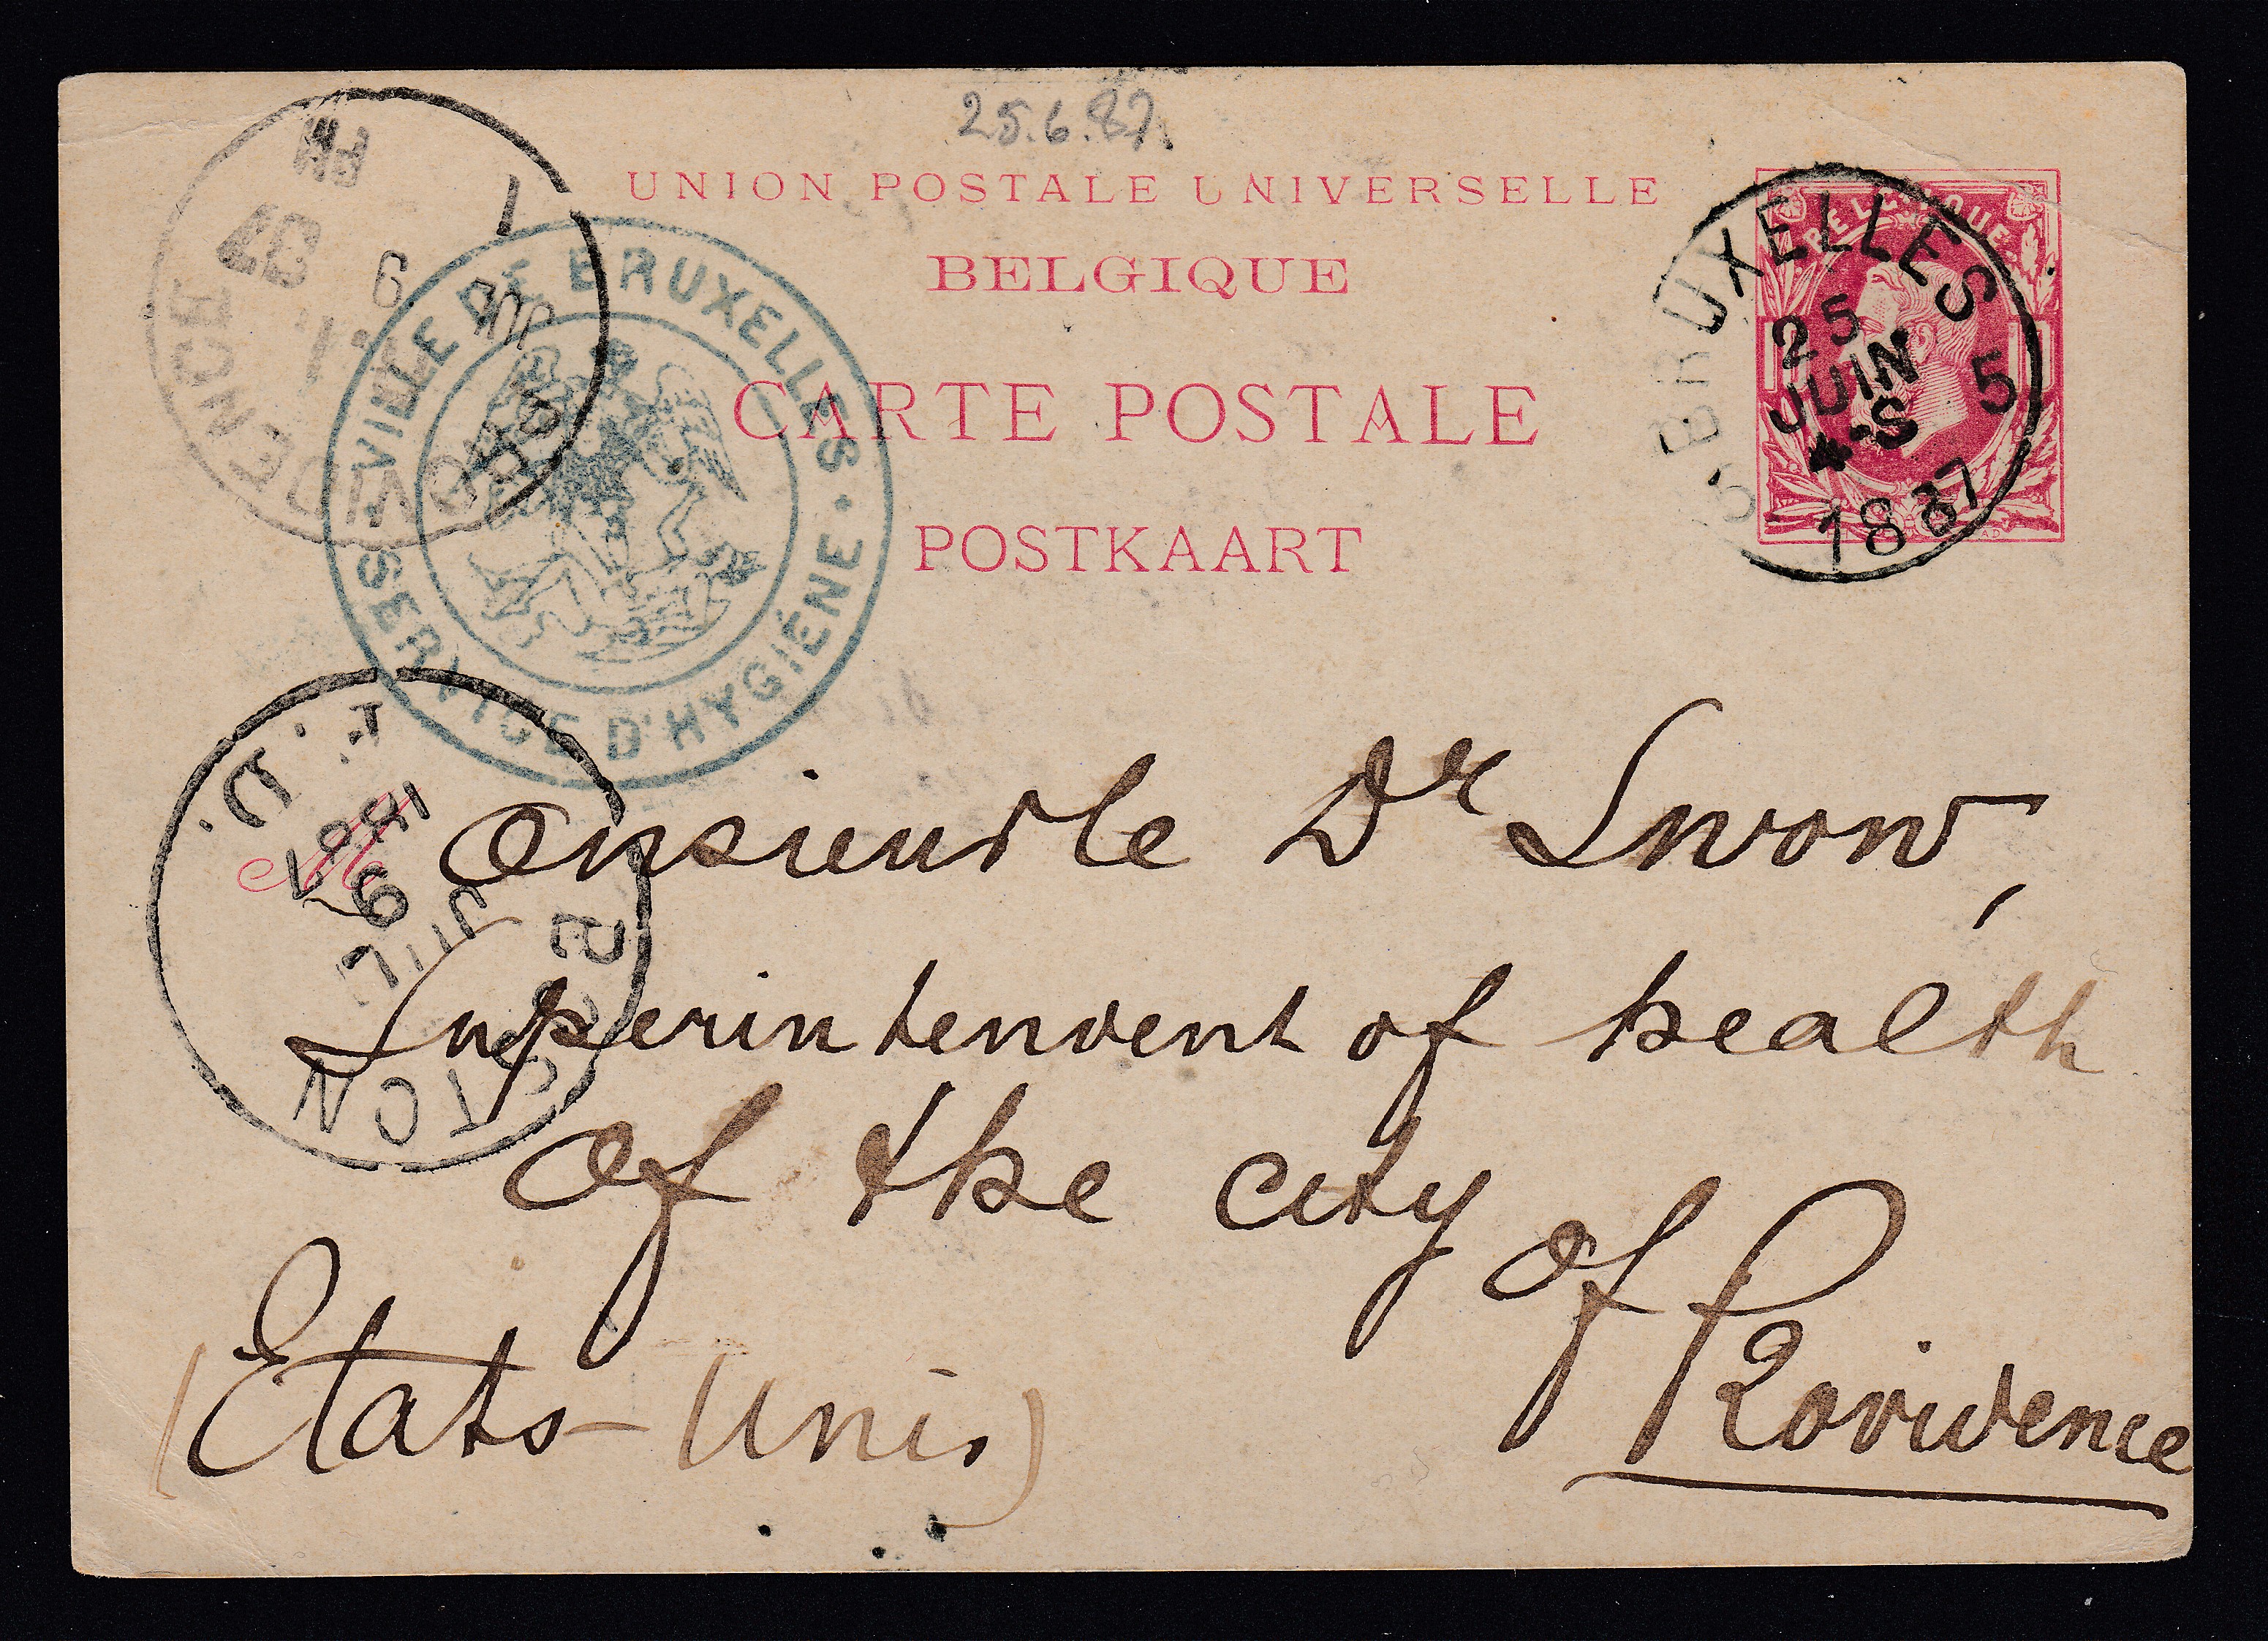 25.6.87.
UNION POSTALE UNIVERSELLE
BELGIQUE
CARTE POSTALE
POSTKAART
BELGIQUE
BRUXELLES 5
25
JUIN
4-S
1887
VILLE DE BRUXELLES
SERVICE D'HYGIÉNE
PROVIDENCE
JUL
9
87
1
PM
BOSTON
P. D.
JUL
9
1887
Monsieur le Dr Snow,
Superintendent of health
of the city
of Providence
(États-Unis)